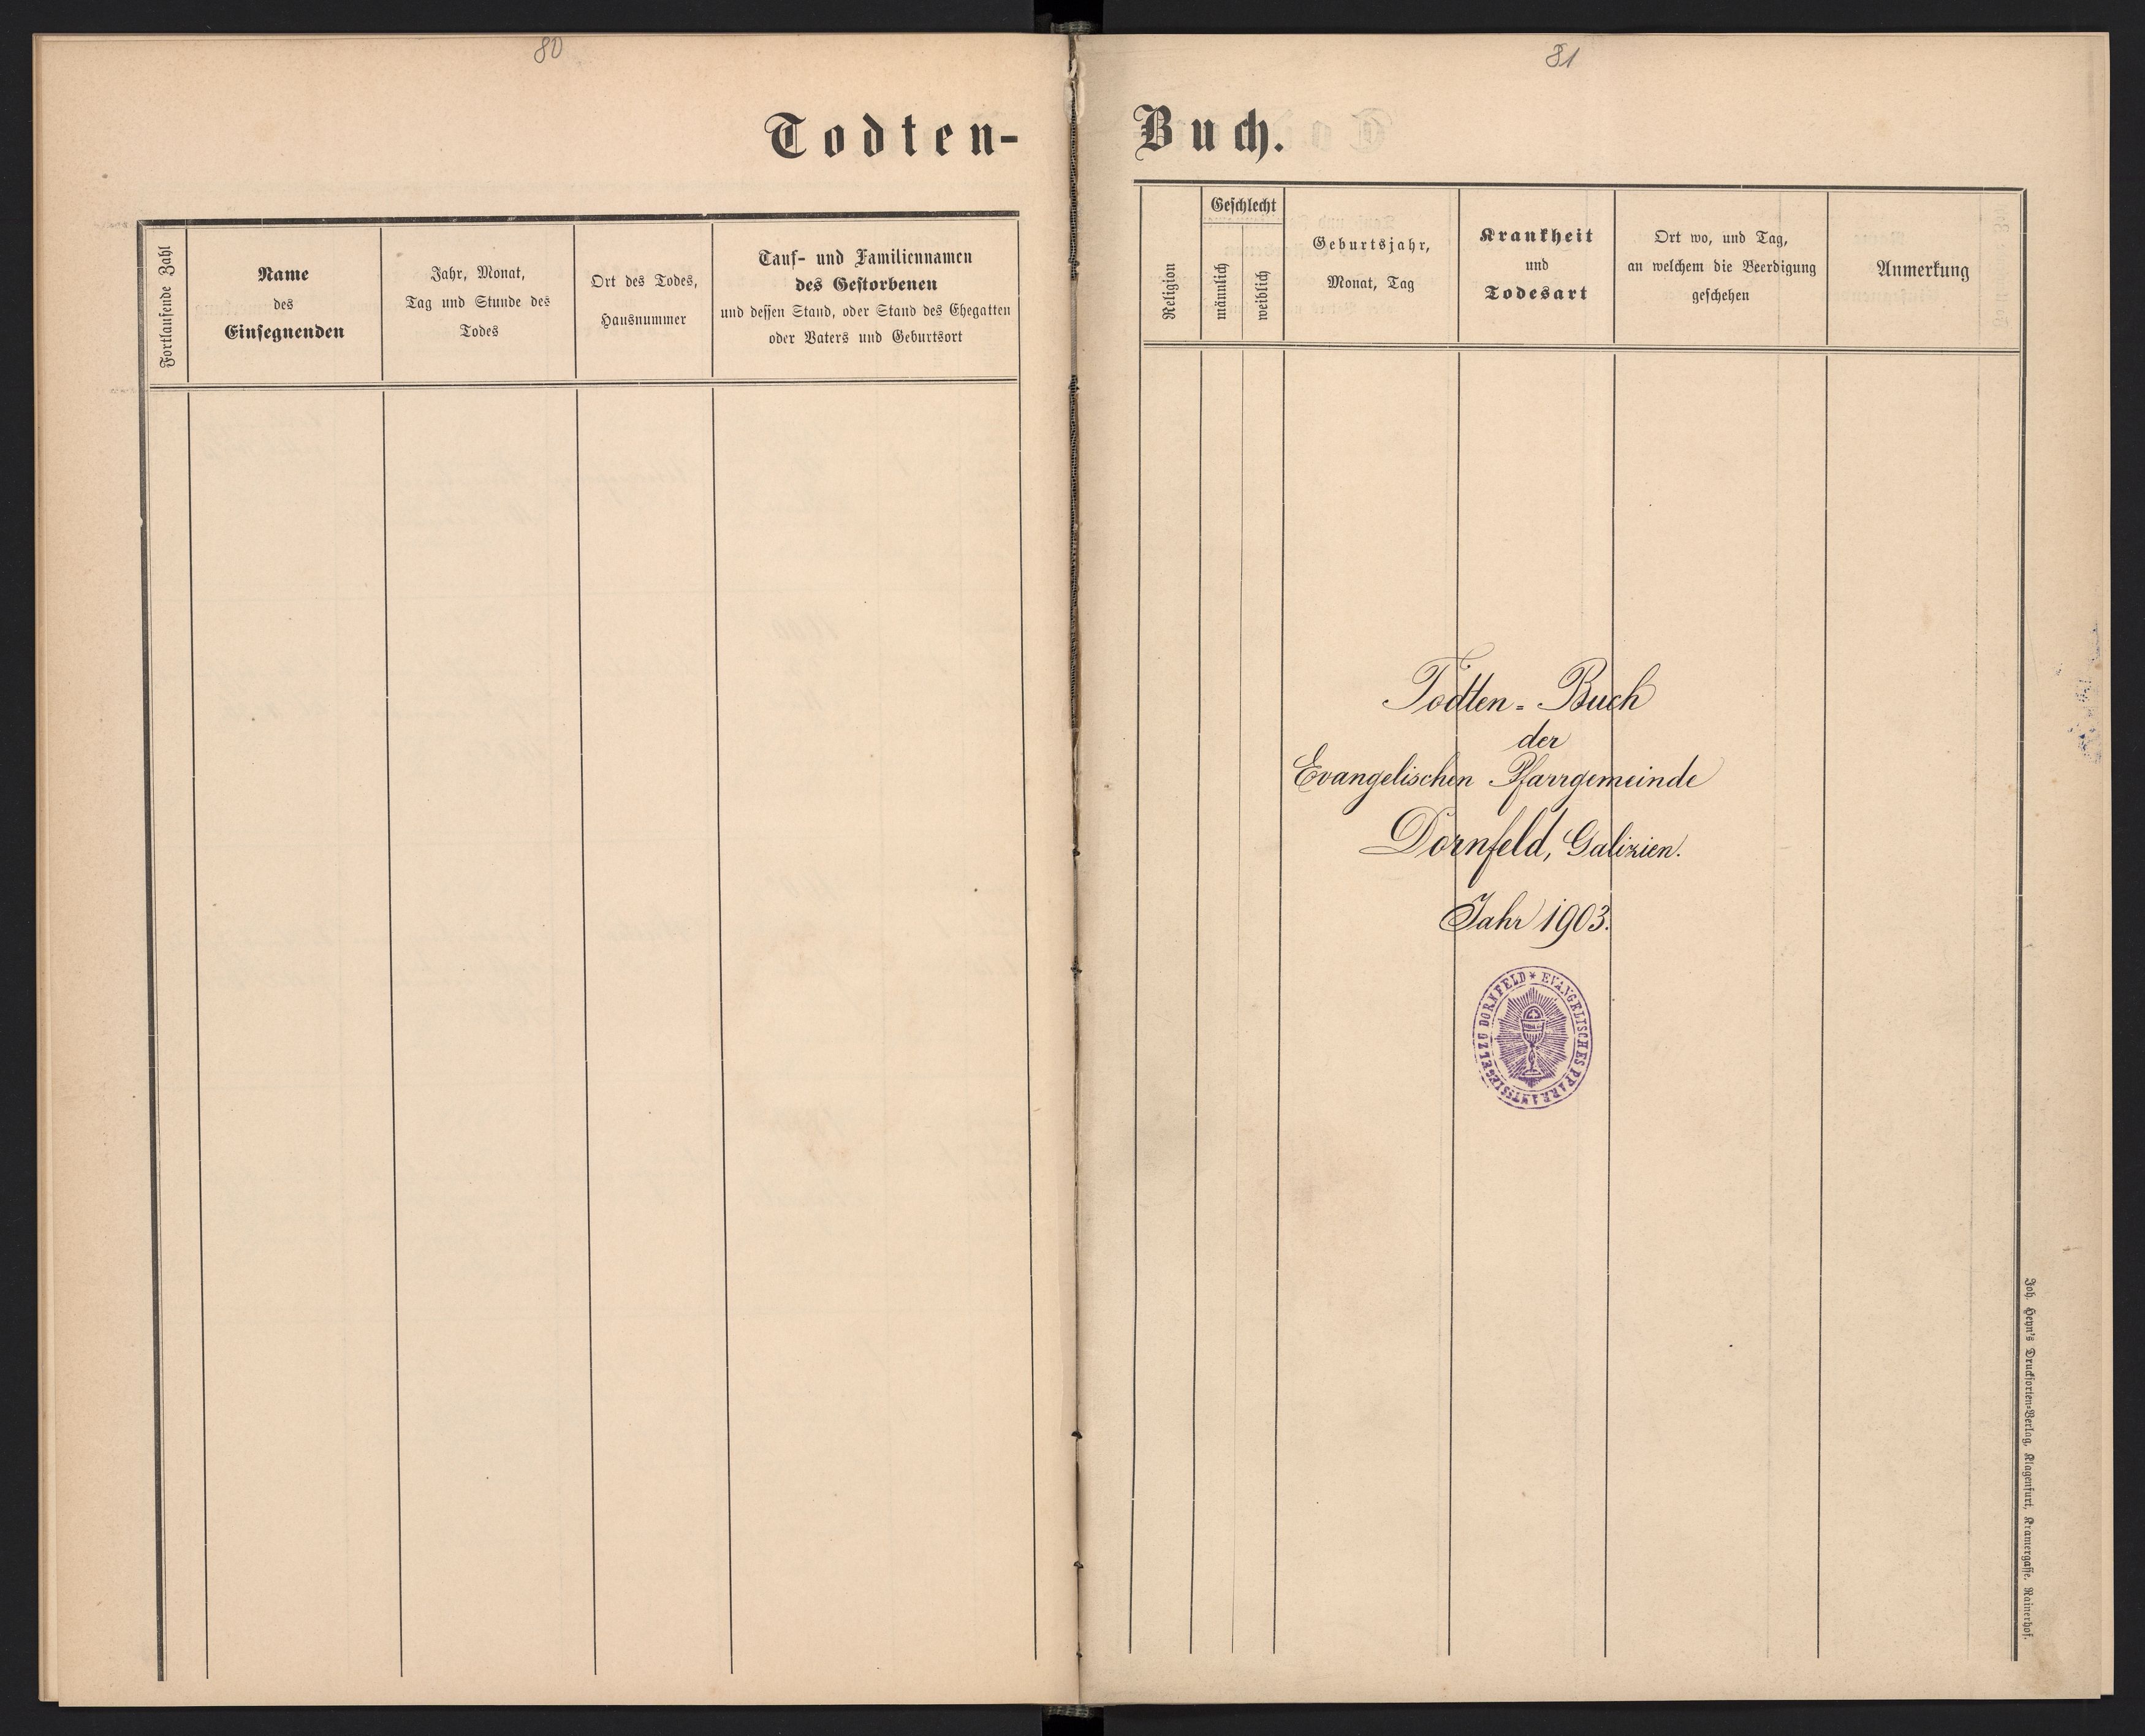 80
Todten-
Fortlaufende Zahl
Name
des
Einsegnenden
Jahr, Monat,
Tag und Stunde des
Todes
Ort des Todes,
Hausnummer
Tauf- und Familiennamen
des Gestorbenen
und dessen Stand, oder Stand des Ehegatten
oder Vaters und Geburtsort
81
Buch.
Religion
Geschlecht
männlich
weiblich
Geburtsjahr,
Monat, Tag
Krankheit
und
Todesart
Ort wo, und Tag,
an welchem die Beerdigung
geschehen
Anmerkung
Todten-Buch
der
Evangelischen Pfarrgemeinde
Dornfeld, Galizien.
Jahr 1903.
* EVANGELISCHES PFARRAMTSSIEGEL ZU DORNFELD
Joh. Heyn's Drucksorten-Verlag, Klagenfurt, Kramergasse, Rainerhof.